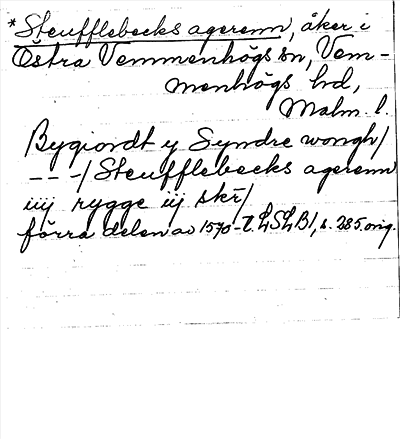 *Steufflebecks agerenn, åker i
Östra Vemmenhögs sn, Vem-
menhögs hd,
Malm. l.
Bygiordt y Syndre wongh/
---/ Steufflebecks agerenn
iiij rygge iij skr/
förra delen av 1570-t. LSLB1, s. 285. orig.